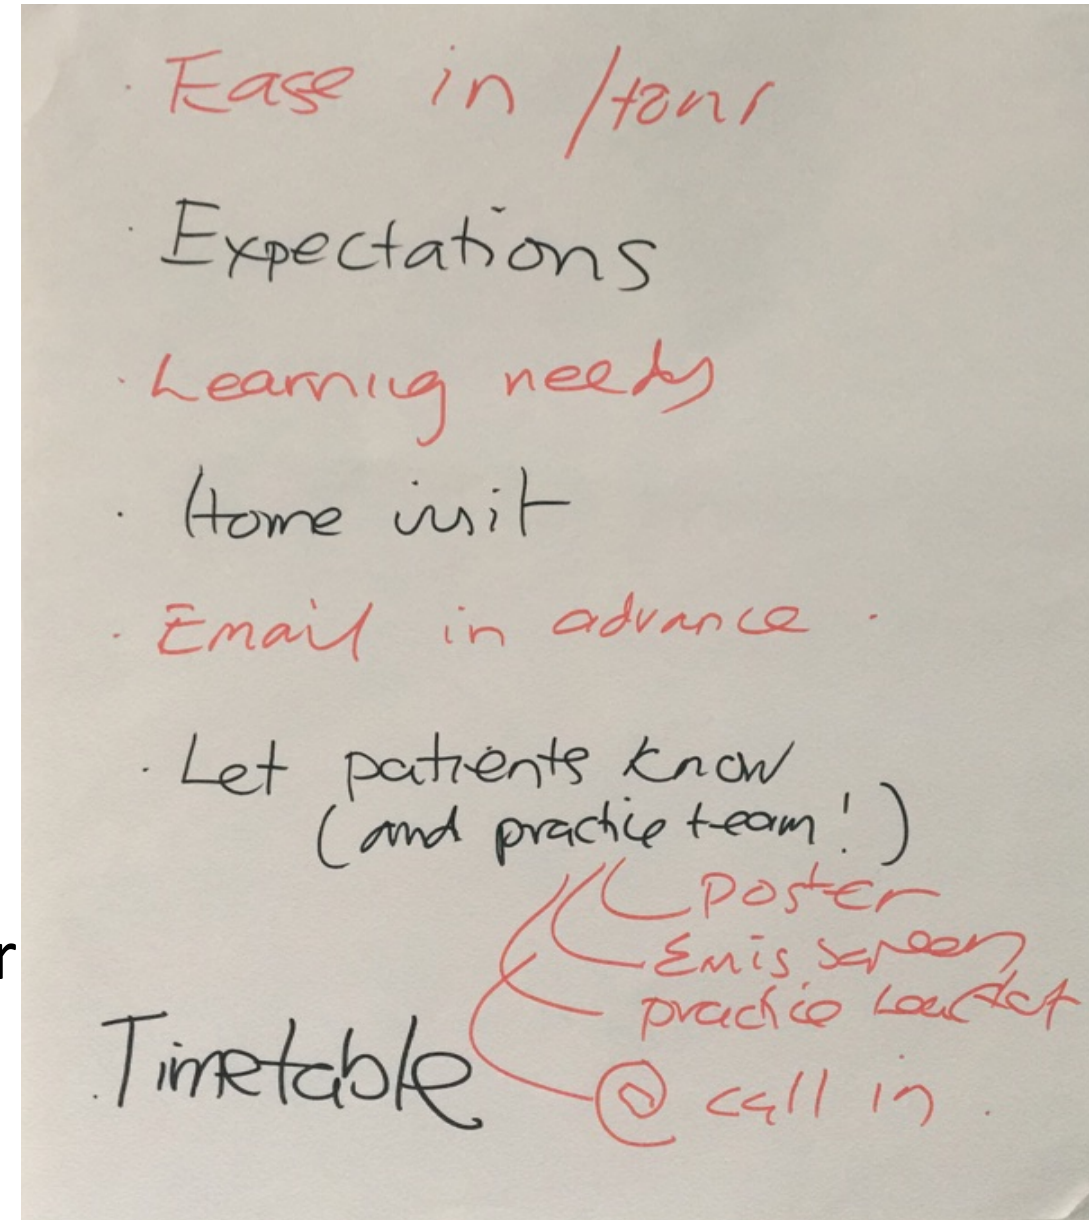 · Ease in / tour
· Expectations
· Learning needs
· Home visit
· Email in advance .
· Let patients know
(and practice team!)
poster
Emis screen
r
practice leaflet
. Timetable
@ call in .